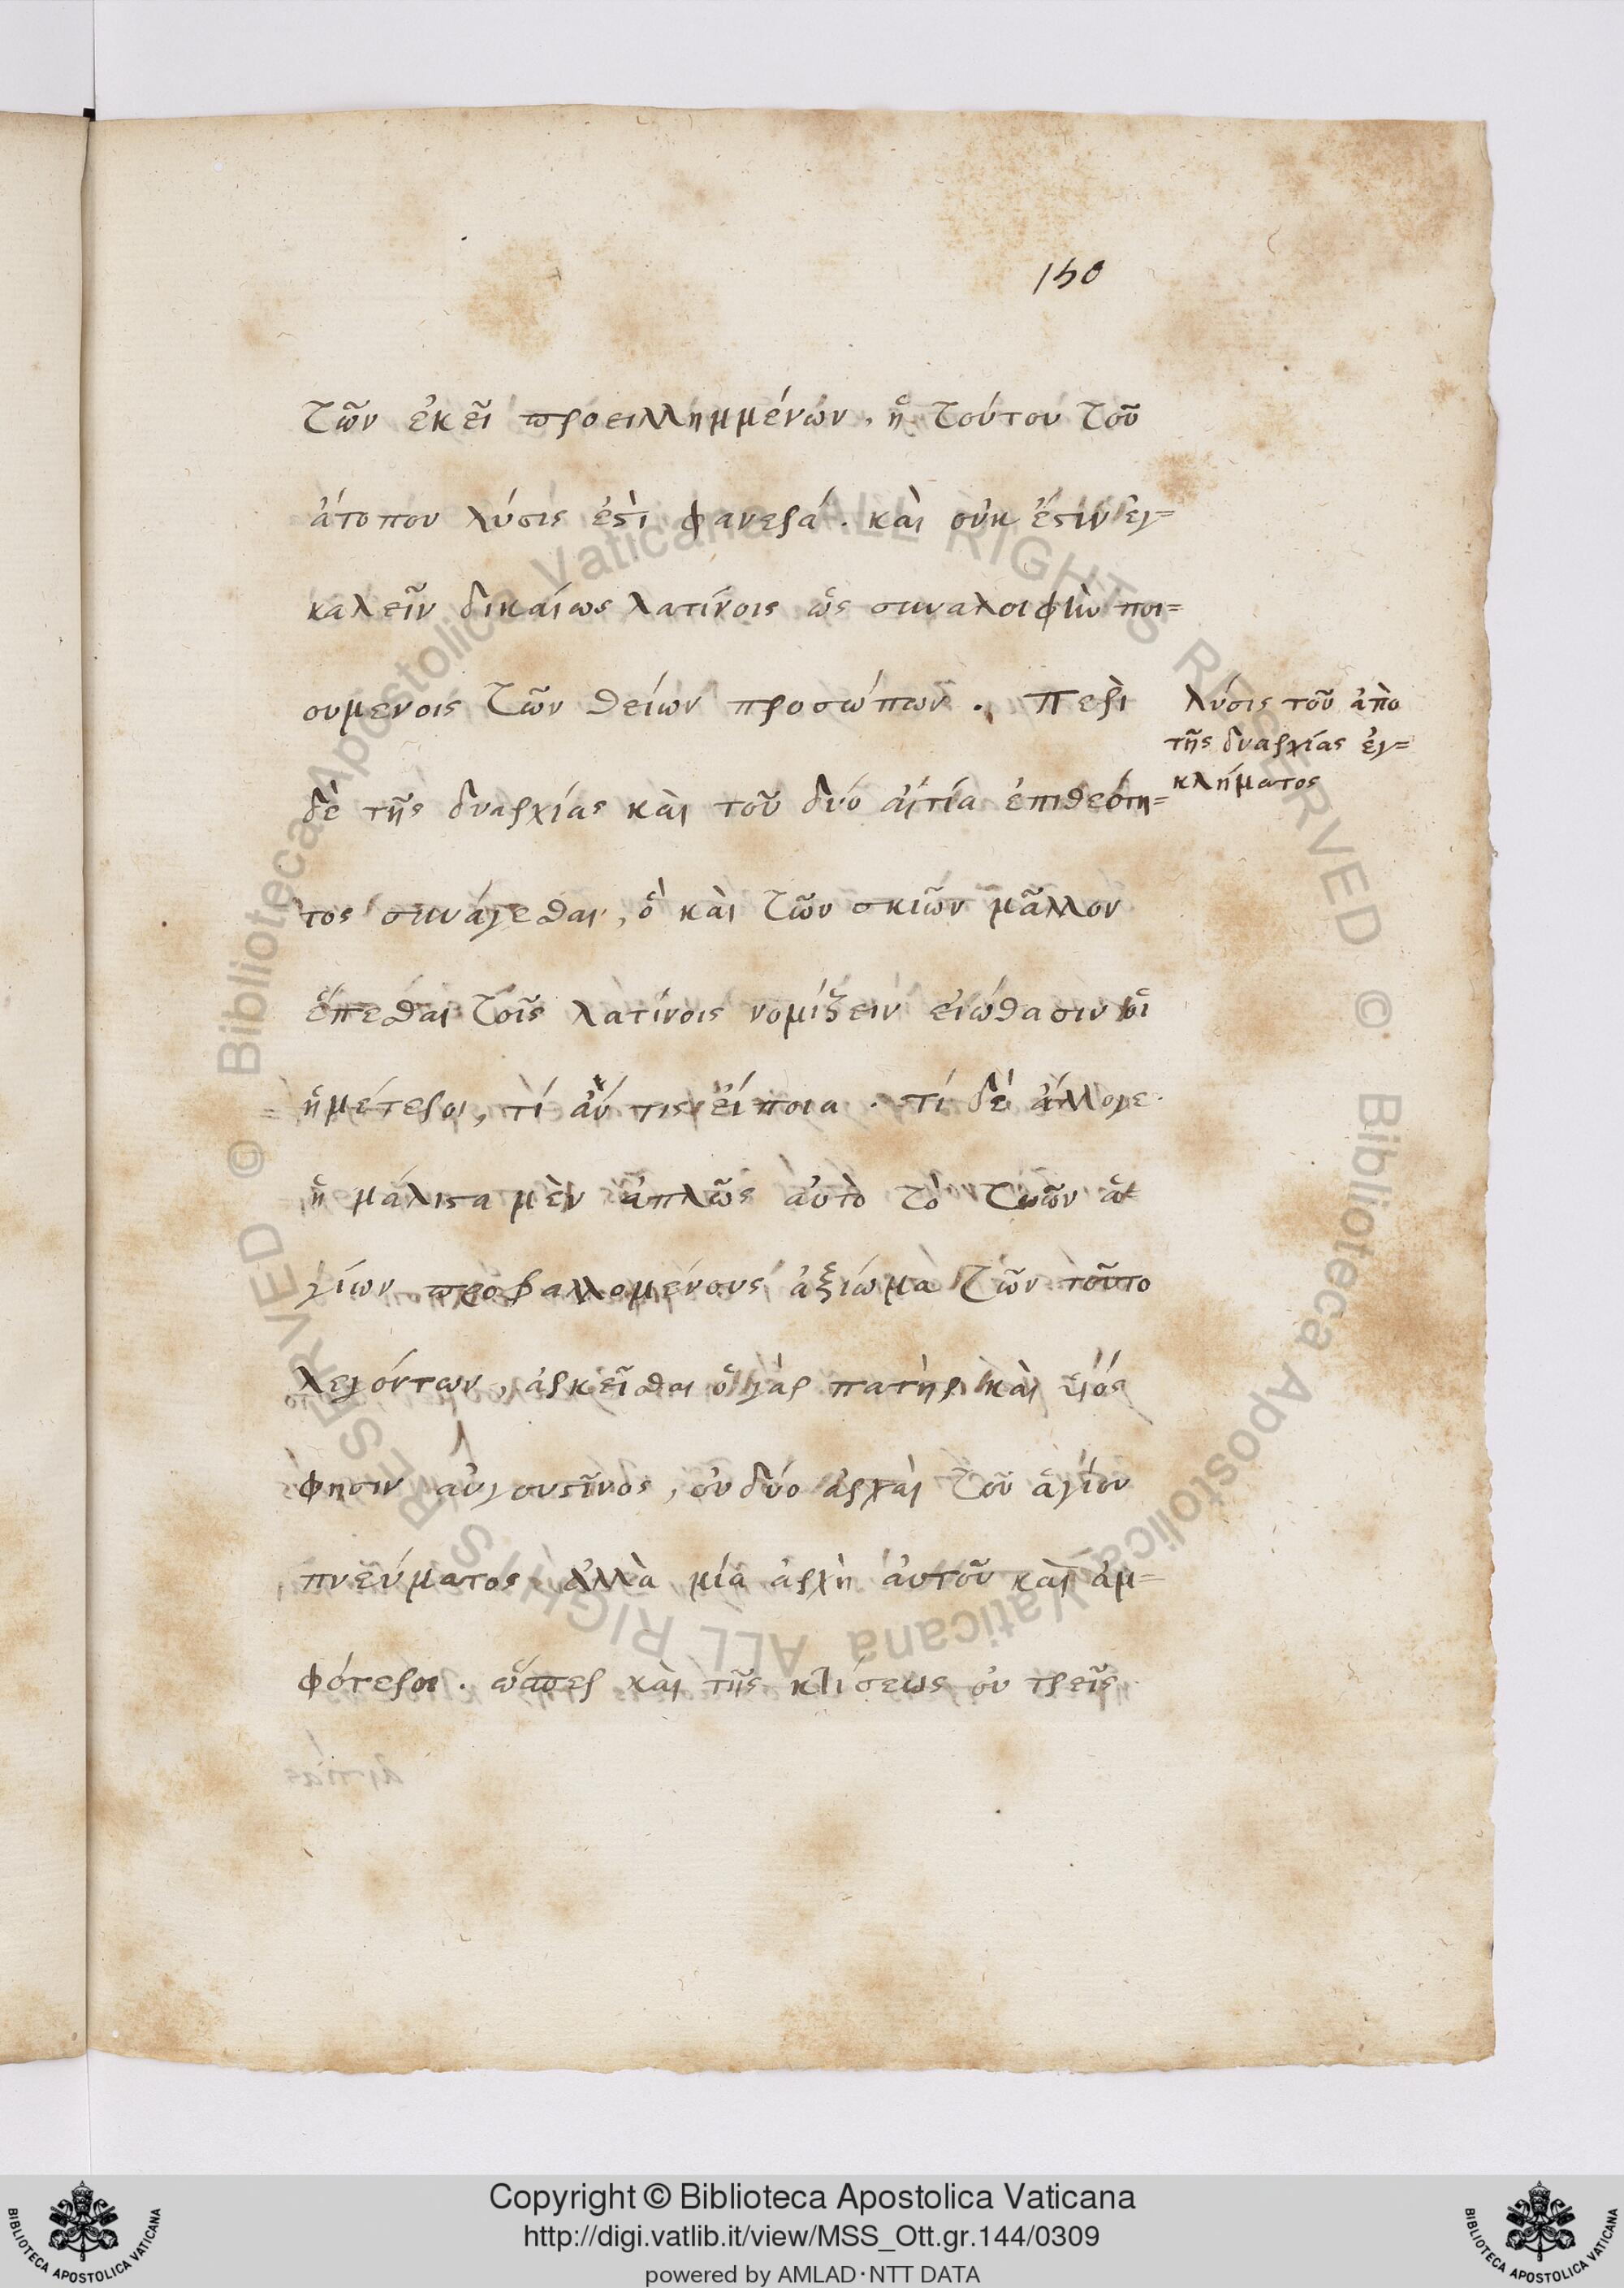 150
τῶν ἐκεῖ προειλλημμένων, ἡ τούτου τοῦ
ἀτόπου λύσις ἐστὶ φανερά. καὶ οὐκ ἔστιν ἐγ=
καλεῖν δικαίως λατίνοις ὡς συναλοιφὴν ποι=
ουμενοις τῶν θείων προσώπων. Περὶ
δὲ τῆς δυαρχίας καὶ τοῦ δύο αἴτια ἐπι θεότη=
τος συνάγεσθαι, ὃ καὶ τῶν σκιῶν μᾶλλον
ἕπεσθαι τοῖς λατίνοις νομίζειν εἰώθασιν οἱ
ἡμέτεροι, τί ἄν τις εἴποι. τί δὲ ἄλλογε
ἢ μάλιστα μὲν ἁπλῶς αὐτὸ τὸ τῶν ἁ
γίων προβαλλομένους ἀξίωμα τῶν τοῦτο
λεγόντων, ἀρκεῖσθαι ὁ γὰρ πατὴρ καὶ υἱός
φησιν αὐγουστῖνος, οὐ δύο ἀρχαὶ τοῦ ἁγίου
πνεύματος, ἀλλὰ μία ἀρχὴ αὐτοῦ καὶ ἀμ=
φότεροι. ὥσπερ καὶ τῆς κτίσεως οὐ τρεῖς
λύσις τοῦ ἀπὸ
τῆς δυαρχίας ἐγ=
κλήματος
© Biblioteca Apostolica Vaticana ALL RIGHTS RESERVED © Biblioteca Apostolica Vaticana ALL RIGHTS RESERVED
Copyright © Biblioteca Apostolica Vaticana
http://digi.vatlib.it/view/MSS_Ott.gr.144/0309
powered by AMLAD·NTT DATA
BIBLIOTECA APOSTOLICA VATICANA
BIBLIOTECA APOSTOLICA VATICANA